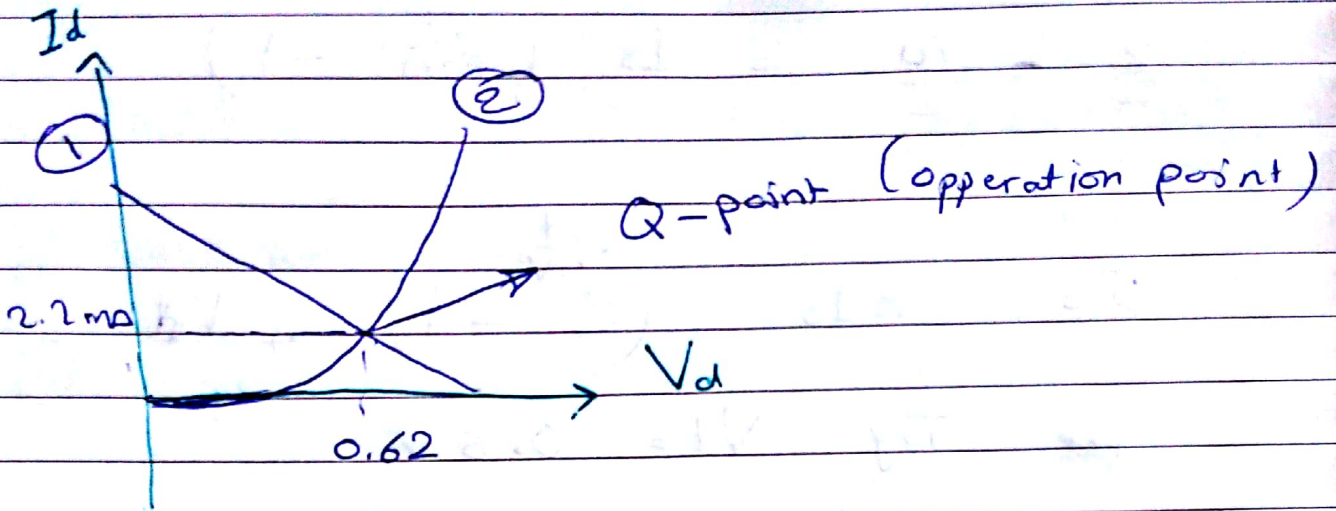 Id
①
②
Q-point (opperation point)
2.2 mA
Vd
0.62